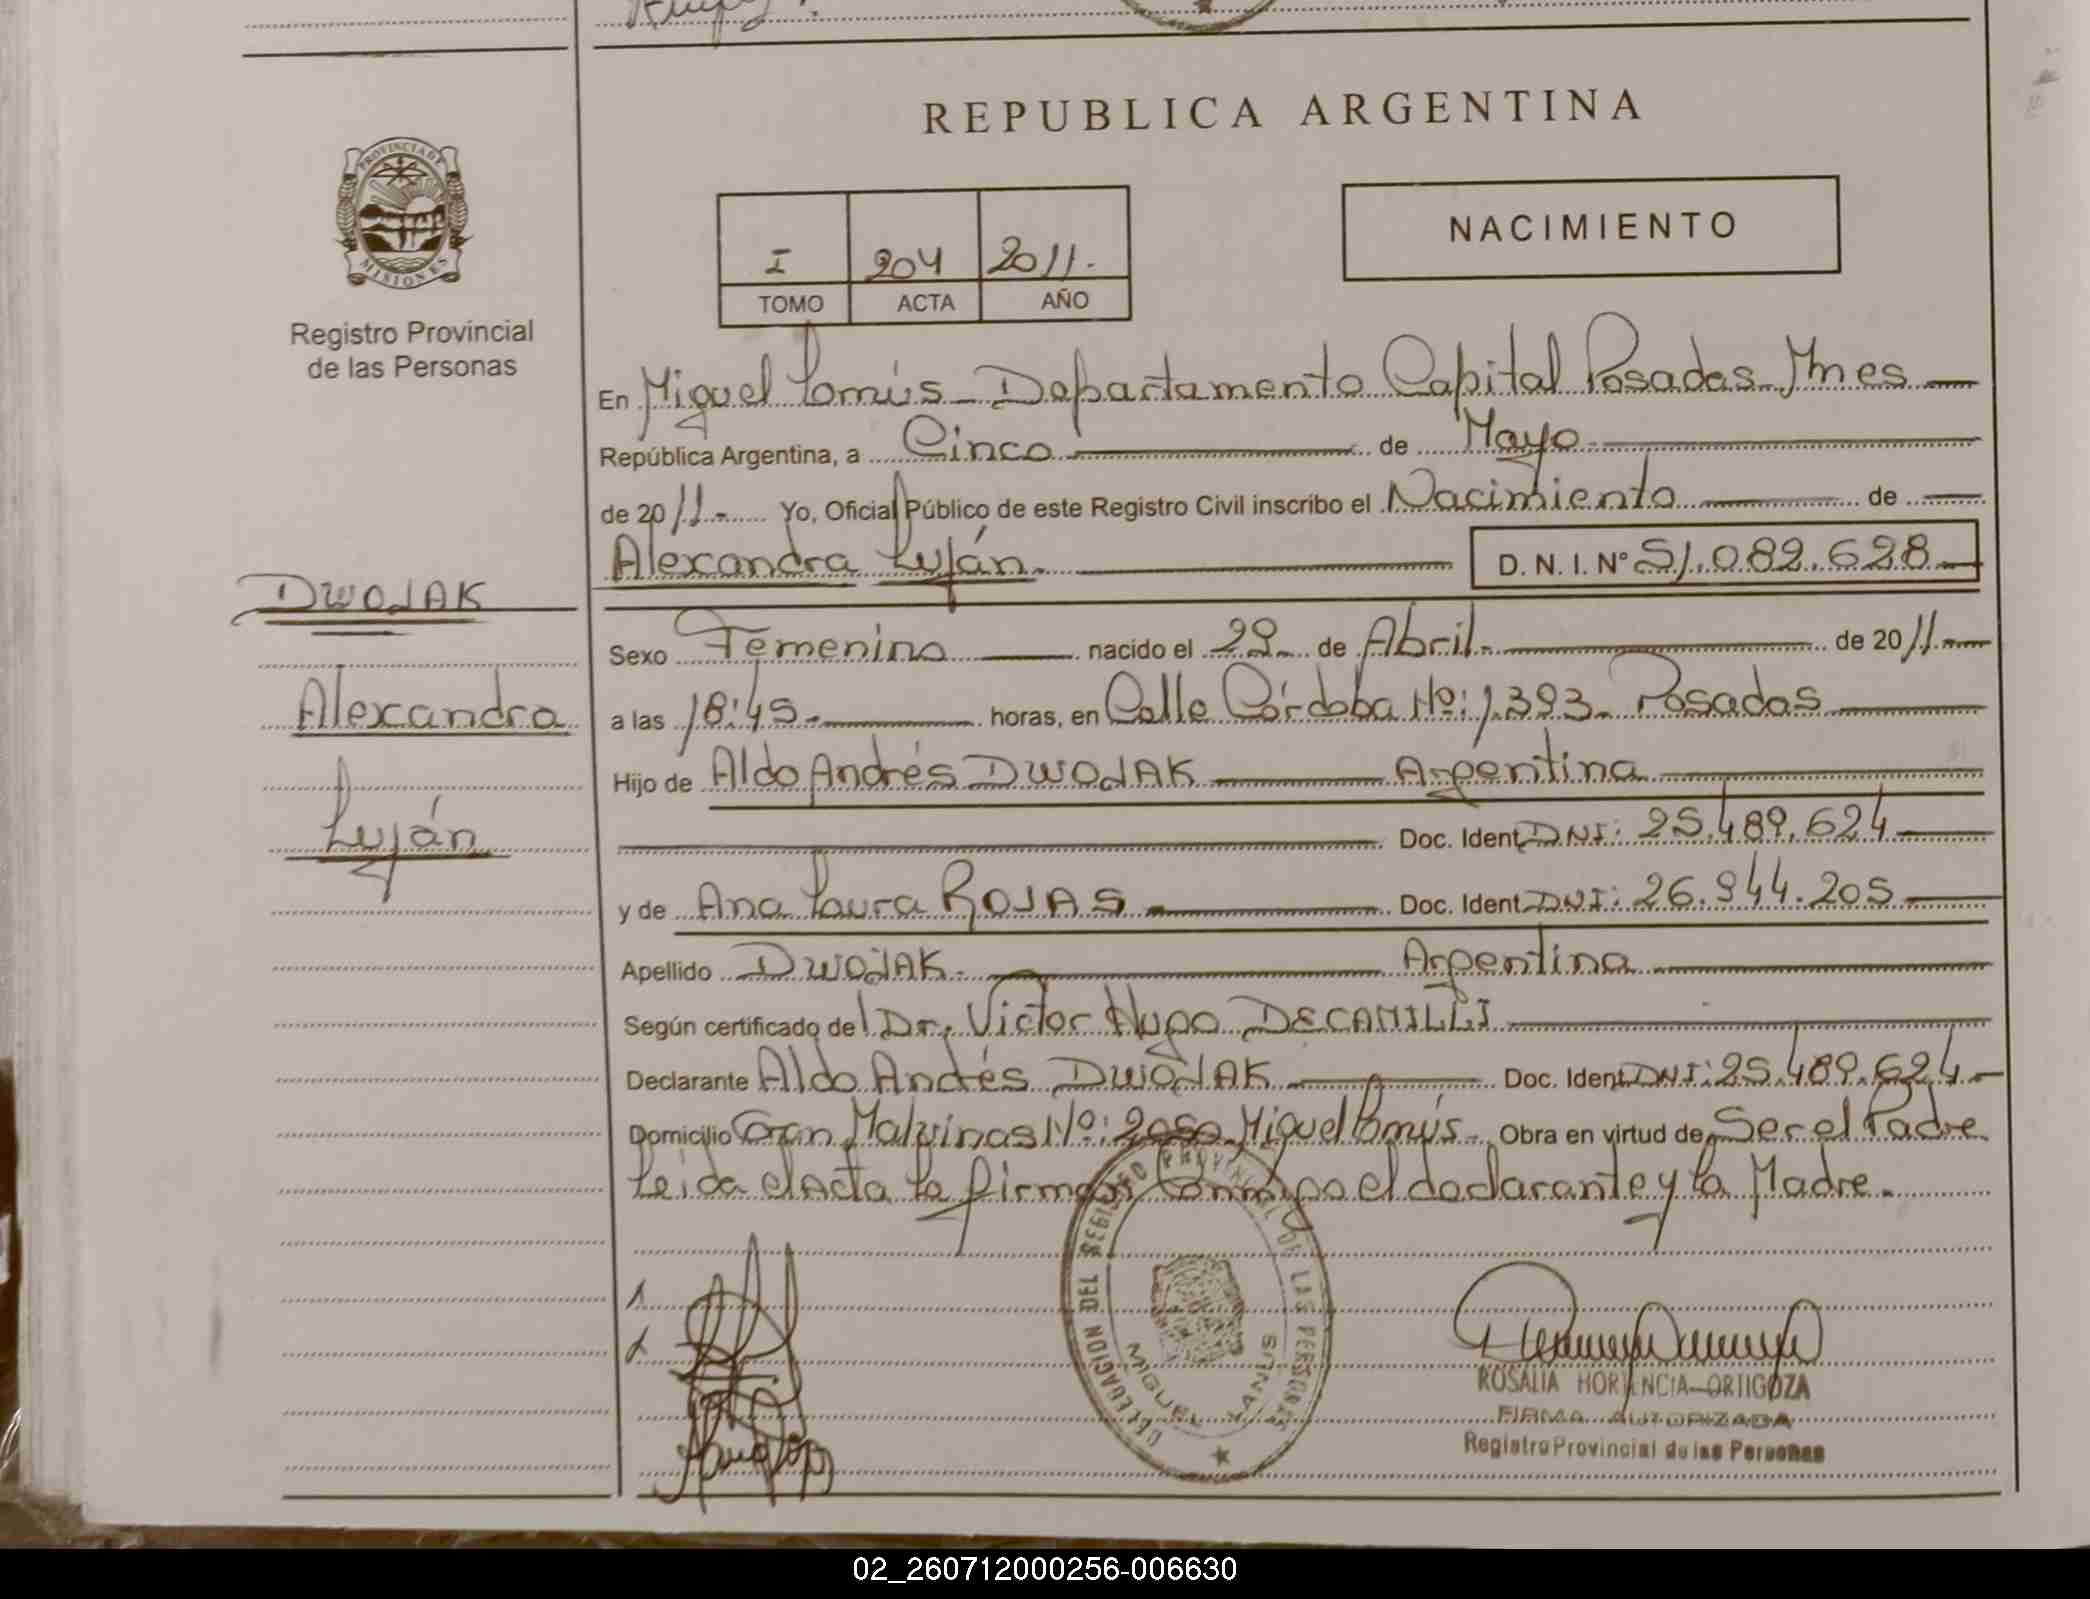 REPUBLICA ARGENTINA
PROVINCIA DE
MISIONES
Registro Provincial
de las Personas
I 204 2011.-
TOMO ACTA AÑO
NACIMIENTO
En Miguel Lanús - Departamento Capital Posadas Mnes
República Argentina, a Cinco de Mayo
de 2011.- Yo, Oficial Público de este Registro Civil inscribo el Nacimiento de
Alexandra Luján.- D. N. I. N° 51.082.628
DWOJAK
Alexandra
Luján
Sexo Femenino nacido el 29 de Abril.- de 2011.-
a las 18:45.- horas, en Calle Córdoba Nº: 1.393.- Posadas
Hijo de Aldo Andrés DWOJAK Argentina
Doc. Ident. DNI: 25.489.624
y de Ana Laura ROJAS Doc. Ident. DNI: 26.944.205
Apellido DWOJAK.- Argentina
Según certificado del Dr. Victor Hugo DECAMILLI
Declarante Aldo Andrés DWOJAK Doc. Ident. DNI: 25.489.624.-
Domicilio Gran Malvinas Nº: 2050 Miguel Lanús.- Obra en virtud de Ser el Padre
Leída el Acta la firman Conmigo el declarante y la Madre.-
DELEGACION DEL REGISTRO PROVINCIAL DE LAS PERSONAS
MIGUEL LANUS
ROSALIA HORTENCIA ORTIGOZA
FIRMA AUTORIZADA
Registro Provincial de las Personas
02_260712000256-006630